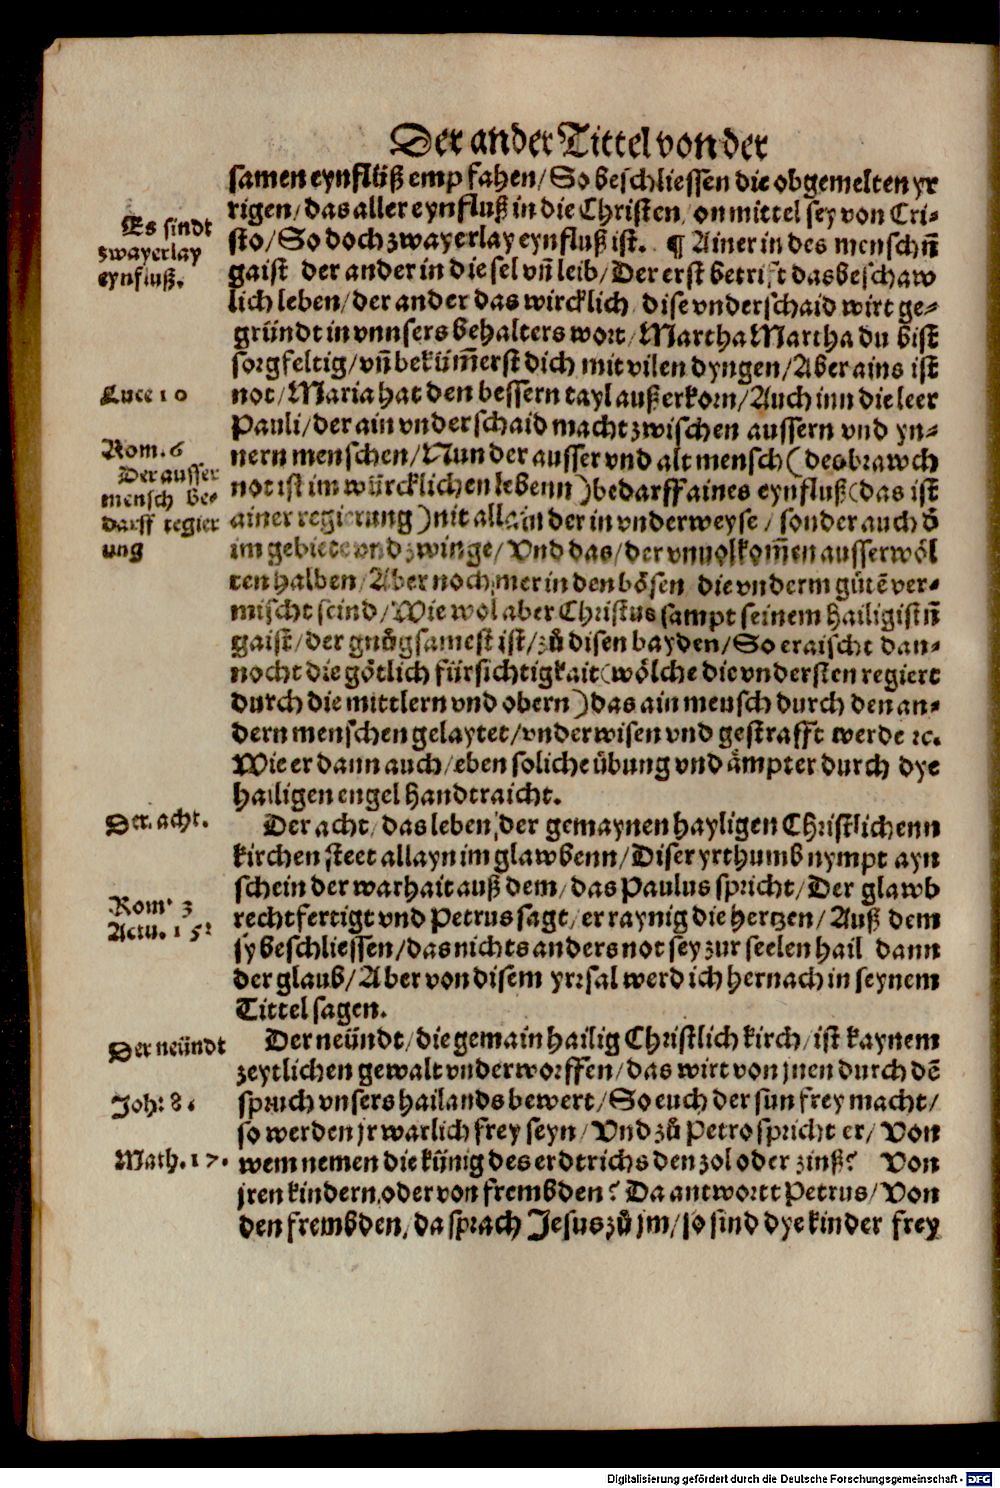 Der ander Tittel von der
samen eynflüß empfahen/ So beschliessen die obgemelten yr
rigen/ das aller eynfluß in die Christen/ on mittel sey von Cri-
Es sindt
zwayerlay
eynfluß.
sto/ So doch zwayerlay eynfluß ist. ¶ Ainer in des menschn̄
gaist der ander in die sel vn̄ leib/ Der erst betrift das beschaw
lich leben/ der ander das wircklich/ dise vnderschaid wirt ge-
gründt in vnnsers behalters wort/ Martha Martha du bist
sorgfeltig/ vn̄ bekūm̄erst dich mit vilen dyngen/ Aber ains ist
Luce 10
not/ Maria hat den bessern tayl außerkorn/ Auch inn die leer
Pauli/ der ain vnderschaid macht zwischen aussern vnd yn-
Rom. 6
Der ausser
mensch be-
darff regier
ung
nern menschen/ Nun der ausser vnd alt mensch (des brawch
not ist im würcklichen lebenn) bedarff aines eynfluß (das ist
ainer regierung) nit allain der in vnderweyse/ sonder auch d̄
im gebiete vnd zwinge/ Vnd das/ der vnuolkom̄en ausserwöl
ten halben/ Aber noch mer in den bösen die vnderm gůtē ver-
mischt seind/ Wie wol aber Christus sampt seinem hailigistn̄
gaist/ der gnůgsamest ist/ zů disen bayden/ So eraischt dan-
nocht die götlich fürsichtigkait (wölche die vndersten regiert
durch die mittlern vnd obern) das ain mensch durch den an-
dern menschen gelaytet/ vnderwisen vnd gestrafft werde ꝛc.
Wie er dann auch/ eben soliche übung vnd ämpter durch dye
hailigen engel handtraicht.
Der. acht.
Der acht/ das leben/ der gemaynen hayligen Christlichenn
kirchen steet allayn im glawbenn/ Diser yrthumb nympt ayn
schein der warhait auß dem/ das Paulus spricht/ Der glawb
Rom. 3
Actu. 15.
rechtfertigt vnd Petrus sagt/ er raynig die hertzen/ Auß dem
sy beschliessen/ das nichts anders not sey zur seelen hail dann
der glaub/ Aber von disem yrrsal werd ich hernach in seynem
Tittel sagen.
Der neündt
Der neündt/ die gemain hailig Christlich kirch/ ist kaynem
zeytlichen gewalt vnderworffen/ das wirt von jnen durch dē
Joh: 8.
spruch vnsers hailands bewert/ So euch der sun frey macht/
so werden jr warlich frey seyn/ Vnd zů Petro spricht er/ Von
Math. 17.
wem nemen die künig des erdtrichs den zol oder zinß? Von
jren kindern, oder von frembden? Da antwortt Petrus/ Von
den frembden, da sprach Jesus zů jm/ so sind dye kinder frey
Digitalisierung gefördert durch die Deutsche Forschungsgemeinschaft - DFG